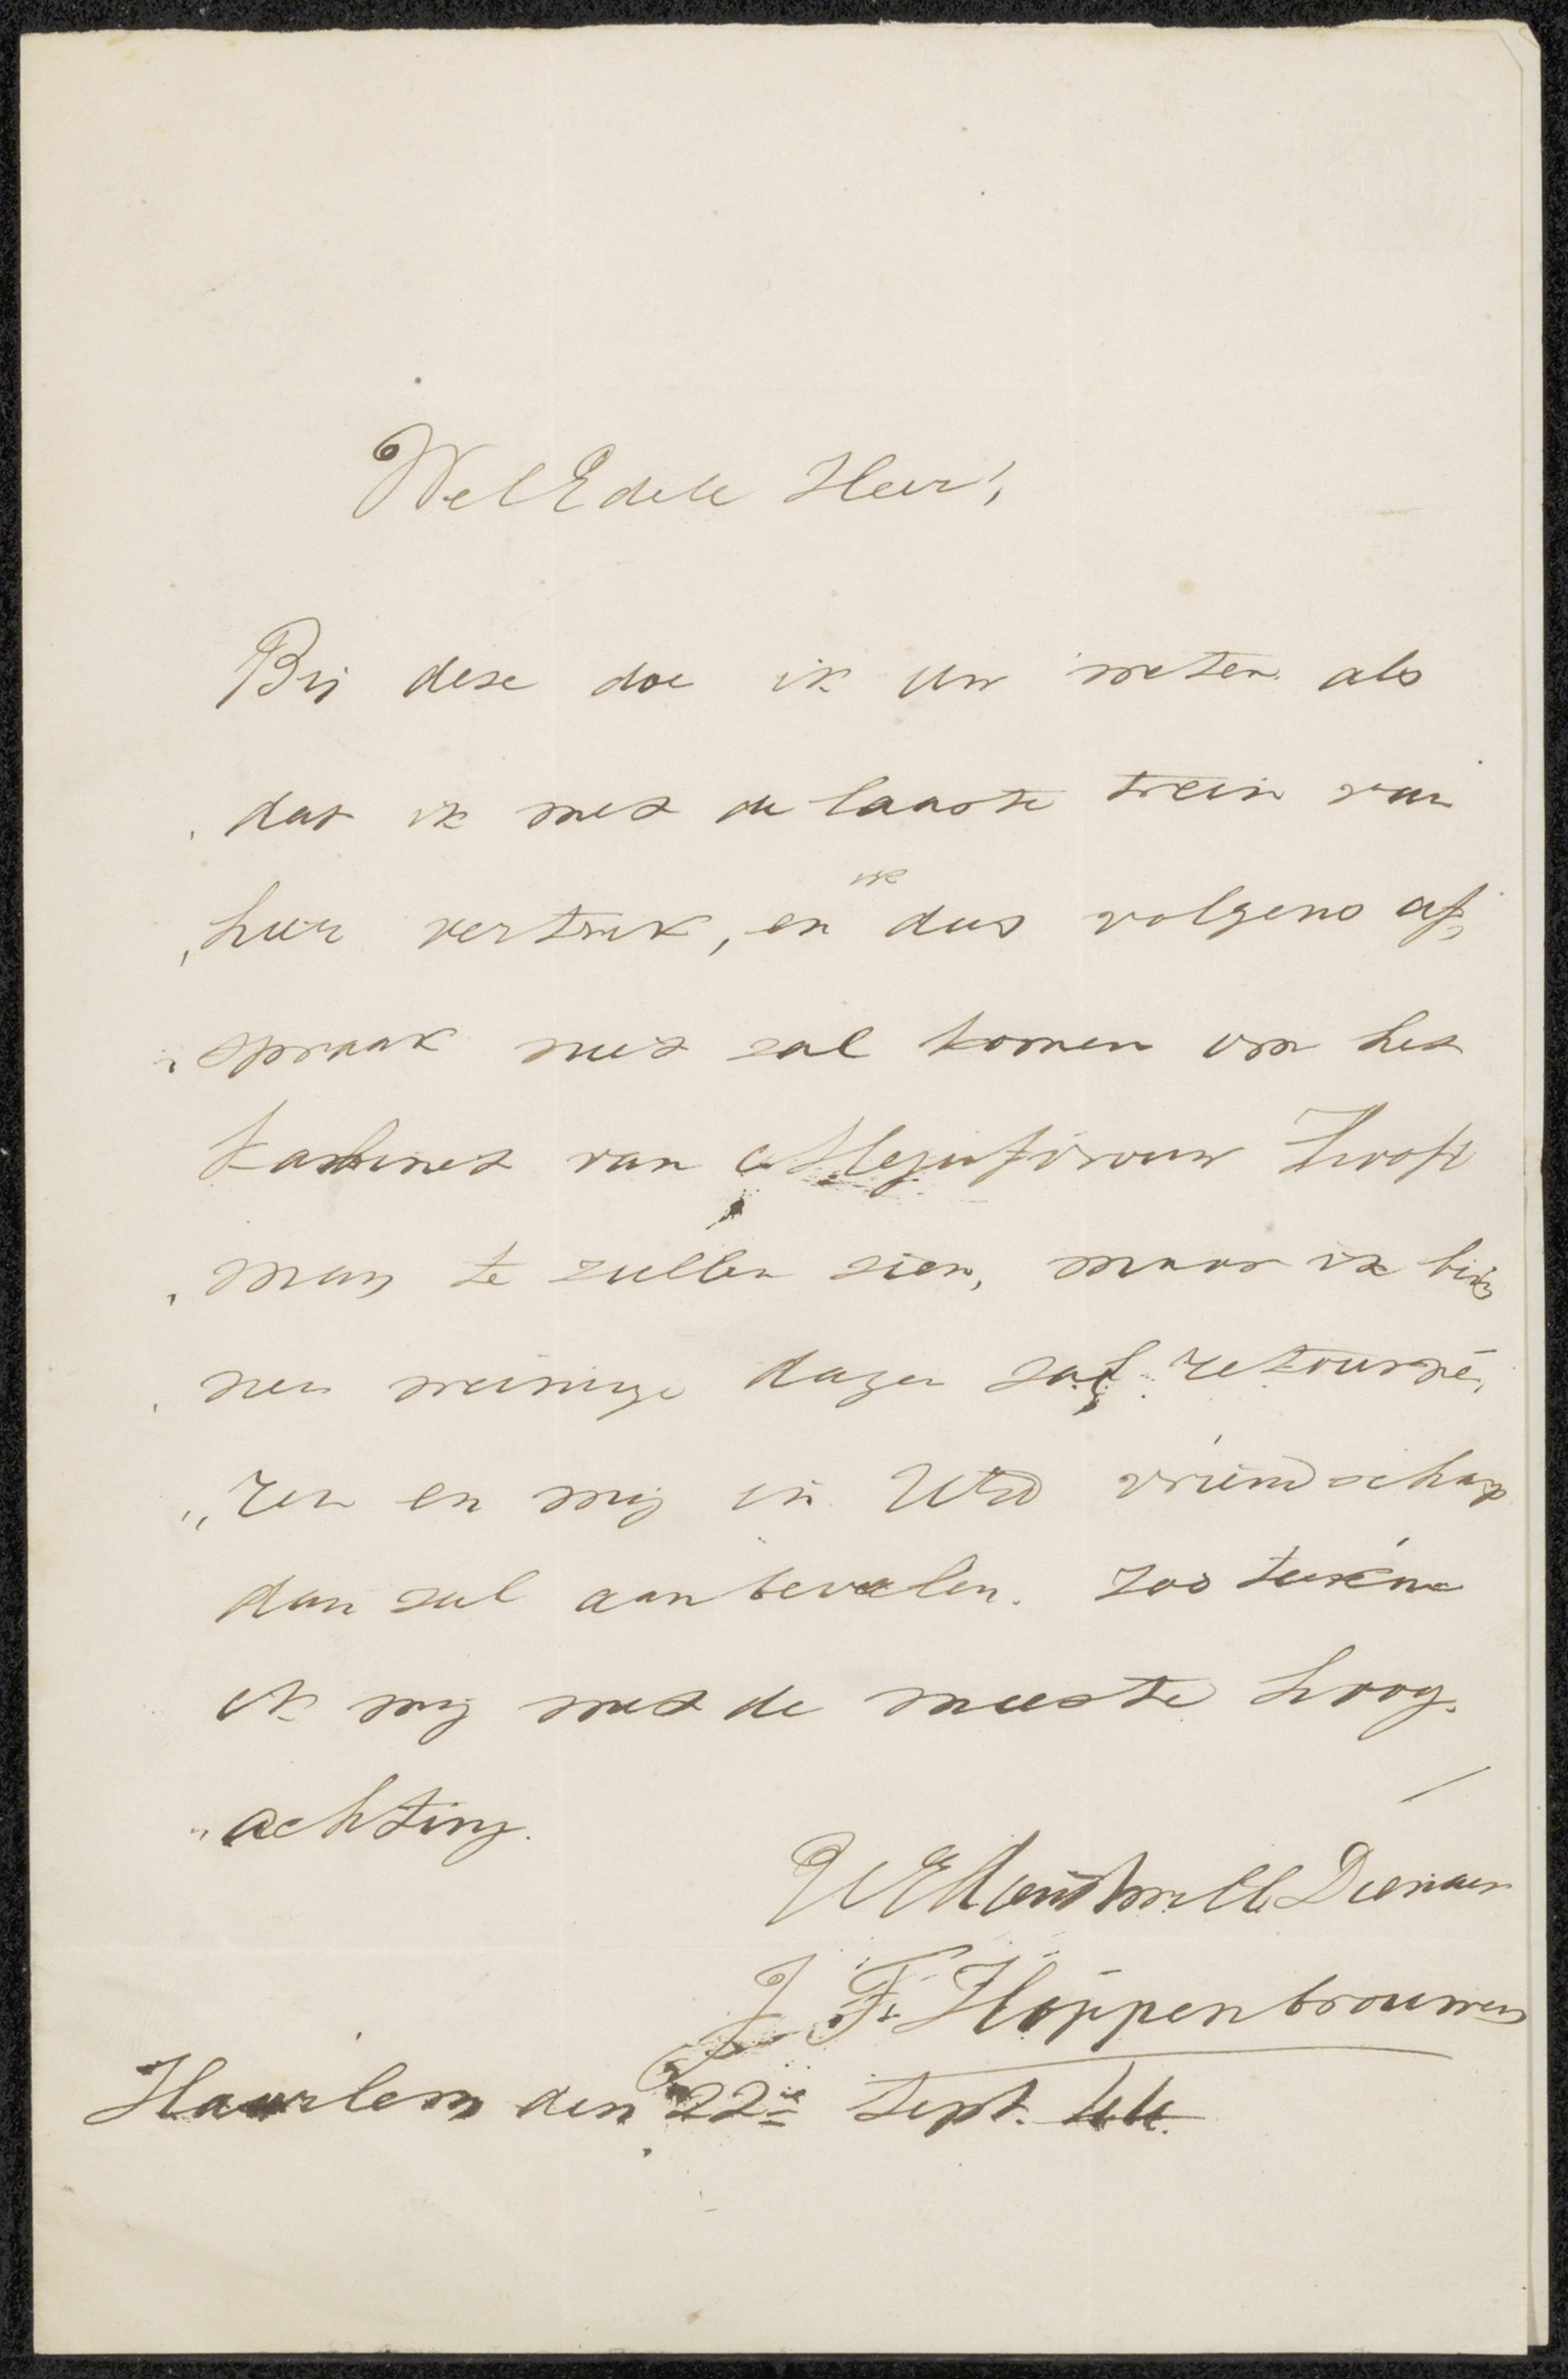 WelEdele Heer!,
Bij dese doe ik uw weten als
dat ik met de laaste trein van
hier vertrek, en ik dus volgens af„
„spraak niet zal komen om het
kabinet van Mejufvrouw Hooft
„man te zullen zien, maar ik bin„
„nen weinige dagen zal retourné„
„ren en mij in UEd vriendschap
dan zal aanbevelen. Zoo teeken
ik mij met de meeste hoog„
„achting.
Dienaar
J. F. Hoppenbrouwers
Haarlem den 22e Sept. 44.